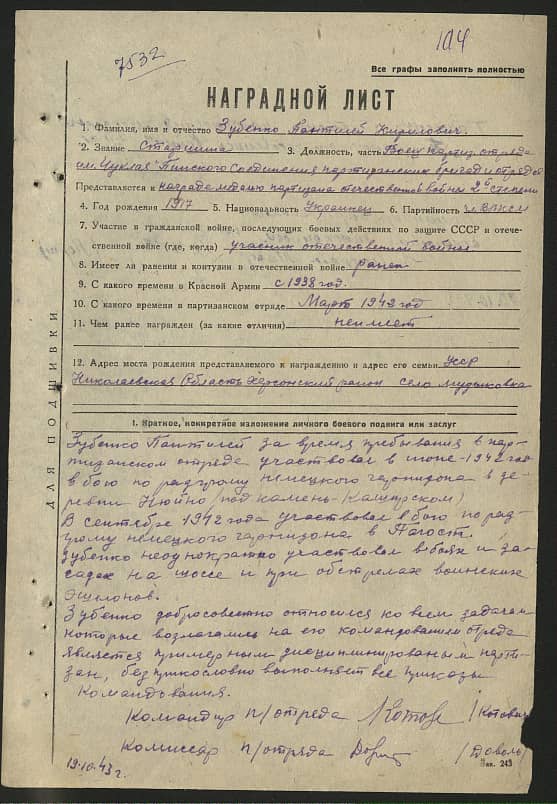 7532
104
Все графы заполнять полностью
НАГРАДНОЙ ЛИСТ
1. Фамилия, имя и отчество Зубенко Пантилей Кирилович.
2. Звание Старшина 3. Должность, часть Боец партиз. отряда
им. Чуклая Пинского Соединения партизанских бригад и отрядов
Представляется к награде медалью партизана отечественой войны 2й степени
4. Год рождения 1917 5. Национальность Украинец 6. Партийность чл ВЛКСМ
7. Участие в гражданской войне, последующих боевых действиях по защите СССР и отече-
ственной войне (где, когда) участник отечественой войны
8. Имеет ли ранения и контузии в отечественной войне ранен
9. С какого времени в Красной Армии с 1938 год.
10. С какого времени в партизанском отряде Март 1942 год
11. Чем ранее награжден (за какие отличия) неимеет
12. Адрес места рождения представляемого к награждению и адрес его семьи УССР
Николаевская Область Херсонский район село
ДЛЯ ПОДШИВКИ
I. Краткое, конкретное изложение личного боевого подвига или заслуг
Зубенко Пантилей за время пребывания в пар-
тизанском отряде участвовал в июне-1942 год
в бою по разгрому немецкого гарнизона в де-
ревни Нюйно (под Камень-Каширском)
В сентябре 1942 года участвовал в бою по раз-
грому немецкого гарнизона в Погост.
Зубенко неоднократно участвовал в боях и за-
садах на шоссе и при обстрелах воинских
эшелонов.
Зубенко добросовестно относился ко всем задачам
которые возлагались на его командованием отряда
является примерным дисциплинированым парти-
зан, бесприкословно выполняет все приказы
командования.
Командир п/отряда /Котович
Комиссар п/отряда /Доволь
19.10.43 г.
Зак. 243